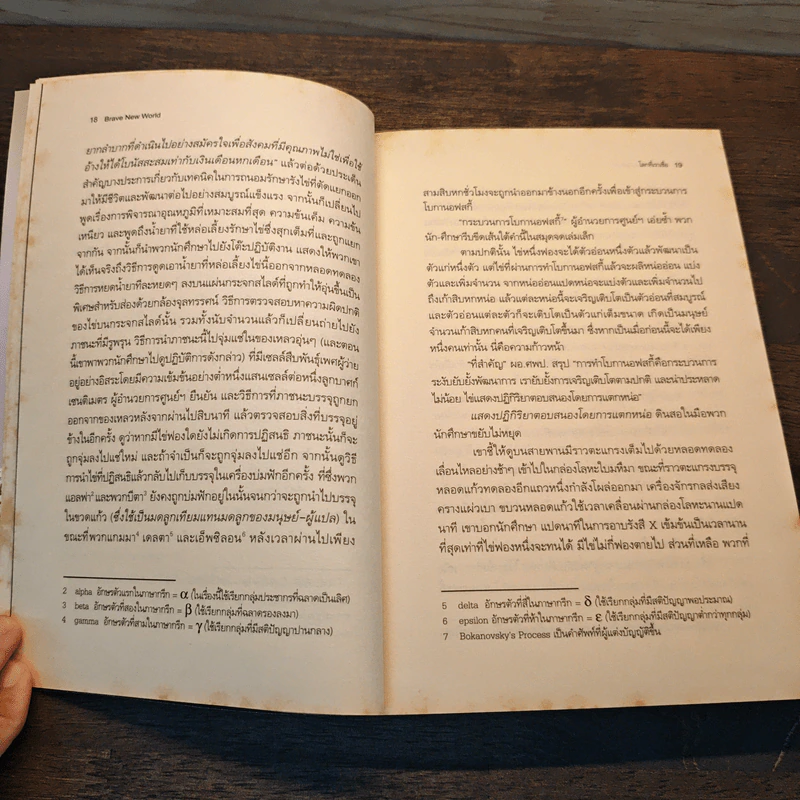 18 Brave New World
ยากลำบากที่ดำเนินไปอย่างสมัครใจเพื่อสังคมที่มีคุณภาพไม่ใช่เพื่อใช้
อ้างให้ได้โบนัสสะสมเท่ากับเงินเดือนหกเดือน" แล้วต่อด้วยประเด็น
สำคัญบางประการเกี่ยวกับเทคนิคในการถนอมรักษารังไข่ที่ตัดแยกออก
มาให้มีชีวิตและพัฒนาต่อไปอย่างสมบูรณ์แข็งแรง จากนั้นก็เปลี่ยนไป
พูดเรื่องการพิจารณาอุณหภูมิที่เหมาะสมที่สุด ความข้นเค็ม ความข้น
เหนียว และพูดถึงน้ำยาที่ใช้หล่อเลี้ยงรักษาไข่ซึ่งสุกเต็มที่และถูกแยก
จากกัน จากนั้นก็นำพวกนักศึกษาไปยังโต๊ะปฏิบัติงาน แสดงให้พวกเขา
ได้เห็นจริงถึงวิธีการดูดเอาน้ำยาที่หล่อเลี้ยงไข่นี้ออกจากหลอดทดลอง
วิธีการหยดน้ำยาทีละหยดๆ ลงบนแผ่นกระจกสไลด์ที่ถูกทำให้อุ่นขึ้นเป็น
พิเศษสำหรับส่องด้วยกล้องจุลทรรศน์ วิธีการตรวจสอบหาความผิดปกติ
ของไข่บนกระจกสไลด์นั้น รวมทั้งนับจำนวนแล้วก็เปลี่ยนถ่ายไปยัง
ภาชนะที่มีรูพรุน วิธีการนำภาชนะนี้ไปจุ่มแช่ในของเหลวอุ่นๆ (และตอน
นี้เขาพาพวกนักศึกษาไปดูปฏิบัติการดังกล่าว) ที่มีเซลล์สืบพันธุ์เพศผู้ว่าย
อยู่อย่างอิสระโดยมีความเข้มข้นอย่างต่ำหนึ่งแสนเซลล์ต่อหนึ่งลูกบาศก์
เซนติเมตร ผู้อำนวยการศูนย์ฯ ยืนยัน และวิธีการที่ภาชนะบรรจุถูกยก
ออกจากของเหลวหลังจากผ่านไปสิบนาที แล้วตรวจสอบสิ่งที่บรรจุอยู่
ข้างในอีกครั้ง ดูว่าหากมีไข่ฟองใดยังไม่เกิดการปฏิสนธิ ภาชนะนั้นก็จะ
ถูกจุ่มลงไปแช่ใหม่ และถ้าจำเป็นก็จะถูกจุ่มลงไปแช่อีก จากนั้นดูวิธี
การนำไข่ที่ปฏิสนธิแล้วกลับไปเก็บบรรจุในเครื่องบ่มฟักอีกครั้ง ที่ซึ่งพวก
แอลฟา² และพวกบีตา³ ยังคงถูกบ่มฟักอยู่ในนั้นจนกว่าจะถูกนำไปบรรจุ
ในขวดแก้ว (ซึ่งใช้เป็นมดลูกเทียมแทนมดลูกของมนุษย์–ผู้แปล) ใน
ขณะที่พวกแกมมา⁴ เดลตา⁵ และเอ็พซิลอน⁶ หลังเวลาผ่านไปเพียง
2 alpha อักษรตัวแรกในภาษากรีก = α (ในเรื่องนี้ใช้เรียกกลุ่มประชากรที่ฉลาดเป็นเลิศ)
3 beta อักษรตัวที่สองในภาษากรีก = β (ใช้เรียกกลุ่มที่ฉลาดรองลงมา)
4 gamma อักษรตัวที่สามในภาษากรีก = γ (ใช้เรียกกลุ่มที่มีสติปัญญาปานกลาง)
โลกที่เราเชื่อ 19
สามสิบหกชั่วโมงจะถูกนำออกมาข้างนอกอีกครั้งเพื่อเข้าสู่กระบวนการ
โบกานอฟสกี้
"กระบวนการโบกานอฟสกี้⁷" ผู้อำนวยการศูนย์ฯ เอ่ยซ้ำ พวก
นักศึกษารีบขีดเส้นใต้คำนี้ในสมุดจดเล่มเล็ก
ตามปกตินั้น ไข่หนึ่งฟองจะได้ตัวอ่อนหนึ่งตัวแล้วพัฒนาเป็น
ตัวแก่หนึ่งตัว แต่ไข่ที่ผ่านการทำโบกานอฟสกี้แล้วจะผลิหน่ออ่อน แบ่ง
ตัวและเพิ่มจำนวน จากหน่ออ่อนแปดหน่อจะแบ่งตัวและเพิ่มจำนวนไป
ถึงเก้าสิบหกหน่อ แล้วแต่ละหน่อนี้จะเจริญเติบโตเป็นตัวอ่อนที่สมบูรณ์
และตัวอ่อนแต่ละตัวก็จะเติบโตเป็นตัวแก่เต็มขนาด เกิดเป็นมนุษย์
จำนวนเก้าสิบหกคนที่เจริญเติบโตขึ้นมา ซึ่งหากเป็นเมื่อก่อนนี้จะได้เพียง
หนึ่งคนเท่านั้น นี่คือความก้าวหน้า
"ที่สำคัญ" ผอ.ศพป. สรุป "การทำโบกานอฟสกี้คือกระบวนการ
ระงับยับยั้งพัฒนาการ เรายับยั้งการเจริญเติบโตตามปกติ และน่าประหลาด
ไม่น้อย ไข่แสดงปฏิกิริยาตอบสนองโดยการแตกหน่อ"
แสดงปฏิกิริยาตอบสนองโดยการแตกหน่อ ดินสอในมือพวก
นักศึกษาขยับไม่หยุด
เขาชี้ให้ดูบนสายพานมีราวตะแกรงเต็มไปด้วยหลอดทดลอง
เลื่อนไหลอย่างช้าๆ เข้าไปในกล่องโลหะใบมหึมา ขณะที่ราวตะแกรงบรรจุ
หลอดแก้วทดลองอีกแถวหนึ่งกำลังโผล่ออกมา เครื่องจักรกลส่งเสียง
ครางแผ่วเบา ขบวนหลอดแก้วใช้เวลาเคลื่อนผ่านกล่องโลหะนานแปด
นาที เขาบอกนักศึกษา แปดนาทีในการอาบรังสี X เข้มข้นเป็นเวลานาน
ที่สุดเท่าที่ไข่ฟองหนึ่งจะทนได้ มีไข่ไม่กี่ฟองตายไป ส่วนที่เหลือ พวกที่
5 delta อักษรตัวที่สี่ในภาษากรีก = δ (ใช้เรียกกลุ่มที่มีสติปัญญาพอประมาณ)
6 epsilon อักษรตัวที่ห้าในภาษากรีก = ε (ใช้เรียกกลุ่มที่มีสติปัญญาต่ำกว่าทุกกลุ่ม)
7 Bokanovsky's Process เป็นคำศัพท์ที่ผู้แต่งบัญญัติขึ้น